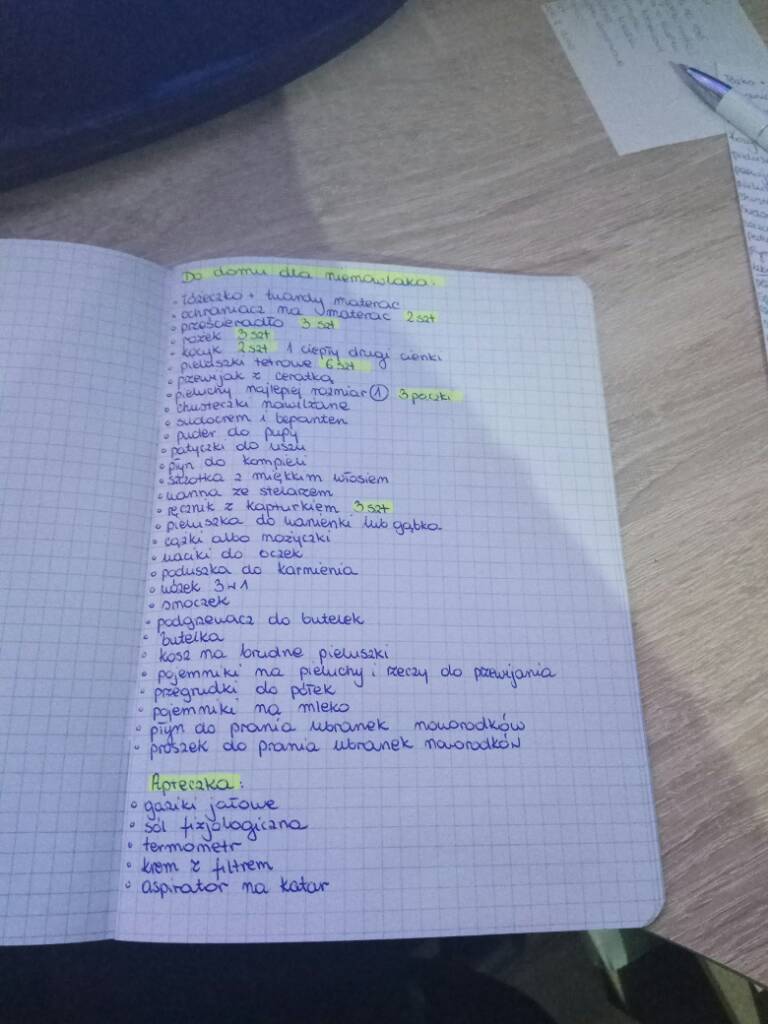 Do domu dla niemowlaka:
• łóżeczko + twardy materac
• ochraniacz na materac 2 szt
• prześcieradło 3 szt
• rożek 3 szt
• kocyk 2 szt 1 ciepły drugi cienki
• pieluszki tetrowe 6 szt
• przewijak z ceratką
• pieluchy najlepiej rozmiar 1 3 paczki
• chusteczki nawilżane
• sudocrem i bepanten
• puder do pupy
• patyczki do uszu
• płyn do kompieli
• szczotka z miękkim włosiem
• wanna ze stelarzem
• ręcznik z kapturkiem 3 szt
• pieluszka do wanienki lub gąbka
• cążki albo nożyczki
• waciki do oczek
• poduszka do karmienia
• wózek 3w1
• smoczek
• podgrzewacz do butelek
• butelka
• kosz na brudne pieluszki
• pojemniki na pieluchy i rzeczy do przewijania
• przegrudki do półek
• pojemniki na mleko
• płyn do prania ubranek noworodków
• proszek do prania ubranek noworodków
Apteczka:
• gaziki jałowe
• sól fizjologiczna
• termometr
• krem z filtrem
• aspirator na katar